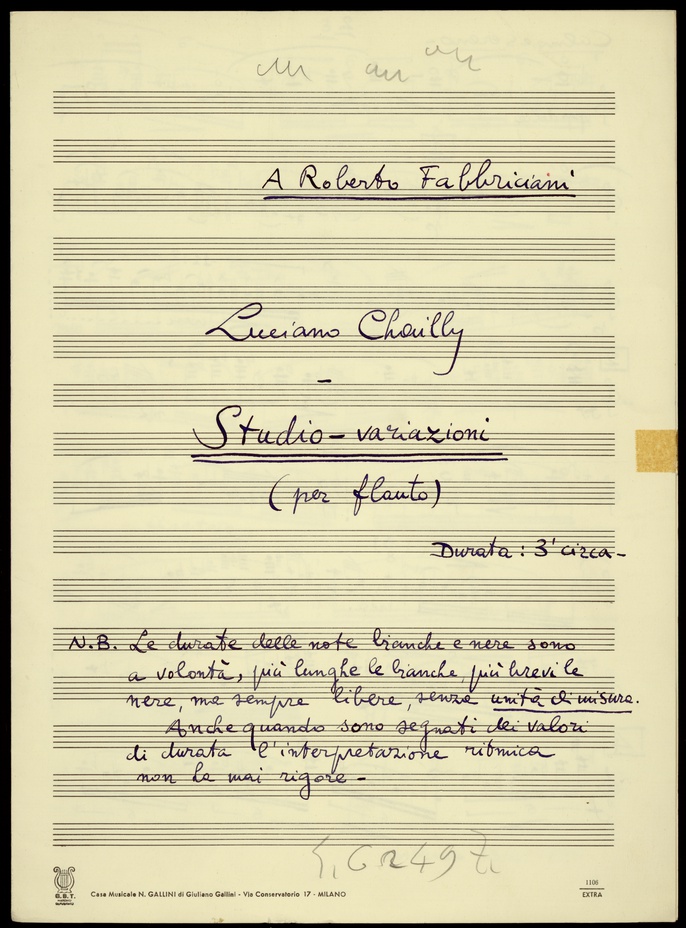 A Roberto Fabbriciani
Luciano Chailly
Studio-variazioni
(per flauto)
Durata: 3' circa
N.B. Le durate delle note bianche e nere sono
a volontà, più lunghe le bianche, più brevi le
nere, ma sempre libere, senza unità di misura.
Anche quando sono segnati dei valori
di durata l'interpretazione ritmica
non ha mai rigore -
Casa Musicale N. GALLINI di Giuliano Gallini - Via Conservatorio 17 - MILANO
1106
EXTRA